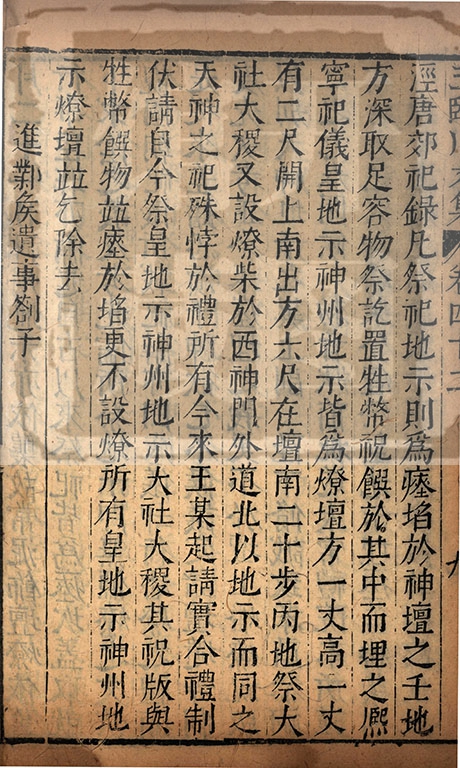 卷四十二
涇唐郊祀錄凡祭祀地示則爲瘞埳於神壇之壬地
方深取足容物祭訖置牲幣祝饌於其中而埋之熈
寧祀儀皇地示神州地示皆爲燎壇方一丈高一丈
有二尺開上南出方六尺在壇南二十步丙地祭大
社大稷又設燎柴於西神門外道北以地示而同之
天神之祀殊悖於禮所有今來王某起請實合禮制
伏請自今祭皇地示神州地示大社大稷其祝版與
牲幣饌物竝瘞於埳更不設燎所有皇地示神州地
示燎壇竝乞除去
進鄴矦遺事劄子